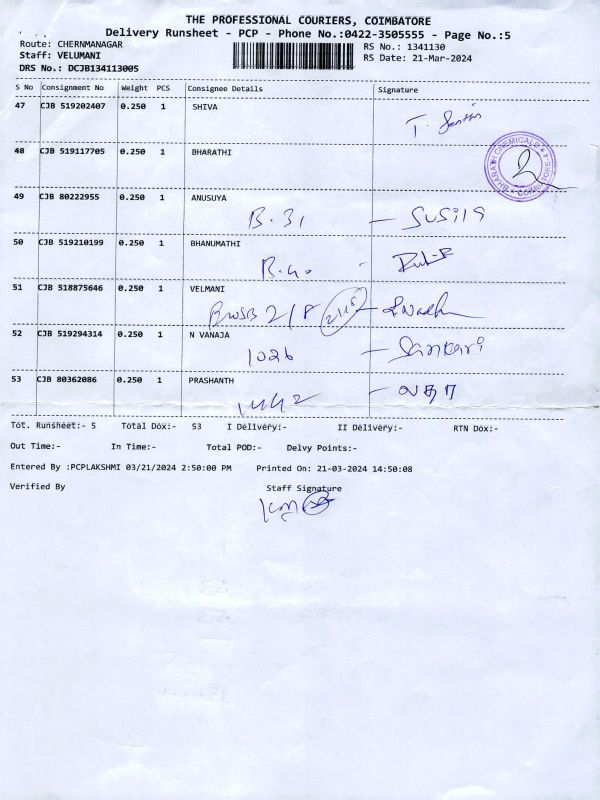 THE PROFESSIONAL COURIERS, COIMBATORE
Delivery Runsheet - PCP - Phone No.:0422-3505555 - Page No.:5
Route: CHERNMANAGAR RS No.: 1341130
Staff: VELUMANI RS Date: 21-Mar-2024
DRS No.: DCJB134113005
S No Consignment No Weight PCS Consignee Details Signature
47 CJB 519202407 0.250 1 SHIVA
T.
48 CJB 519117705 0.250 1 BHARATHI
BHARATH CHEMICALS COIMBATORE-4
49 CJB 80222955 0.250 1 ANUSUYA
B.31 - SUSila
50 CJB 519210199 0.250 1 BHANUMATHI
B.40 -
51 CJB 518875646 0.250 1 VELMANI
2/8 2118 -
52 CJB 519294314 0.250 1 N VANAJA
1026 - Sankari
53 CJB 80362086 0.250 1 PRASHANTH
- லதா
Tot. Runsheet:- 5 Total Dox:- 53 I Delivery:- II Delivery:- RTN Dox:-
Out Time:- In Time:- Total POD:- Delvy Points:-
Entered By :PCPLAKSHMI 03/21/2024 2:50:00 PM Printed On: 21-03-2024 14:50:08
Verified By Staff Signature